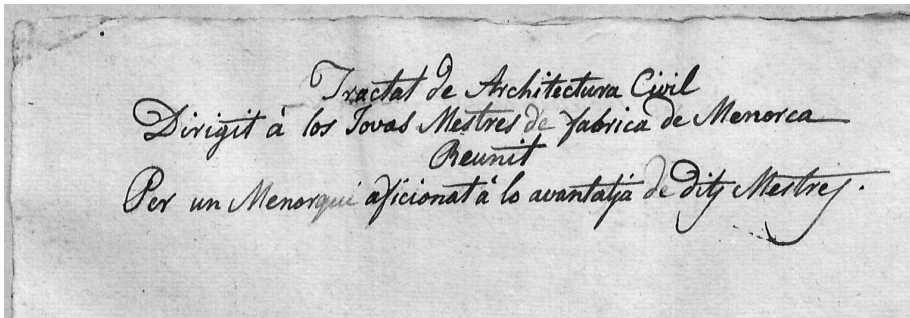 Tractat de Architectura Civil
Dirigit à los Jovas Mestres de fabrica de Menorca
Reunit
Per un Menorqui aficionat à lo avantatja de dits Mestres.